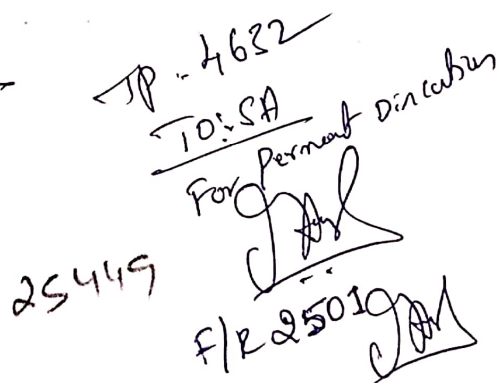 JP. 4632
TO:- SA
For Perment Dircation
25449
F/R 2501